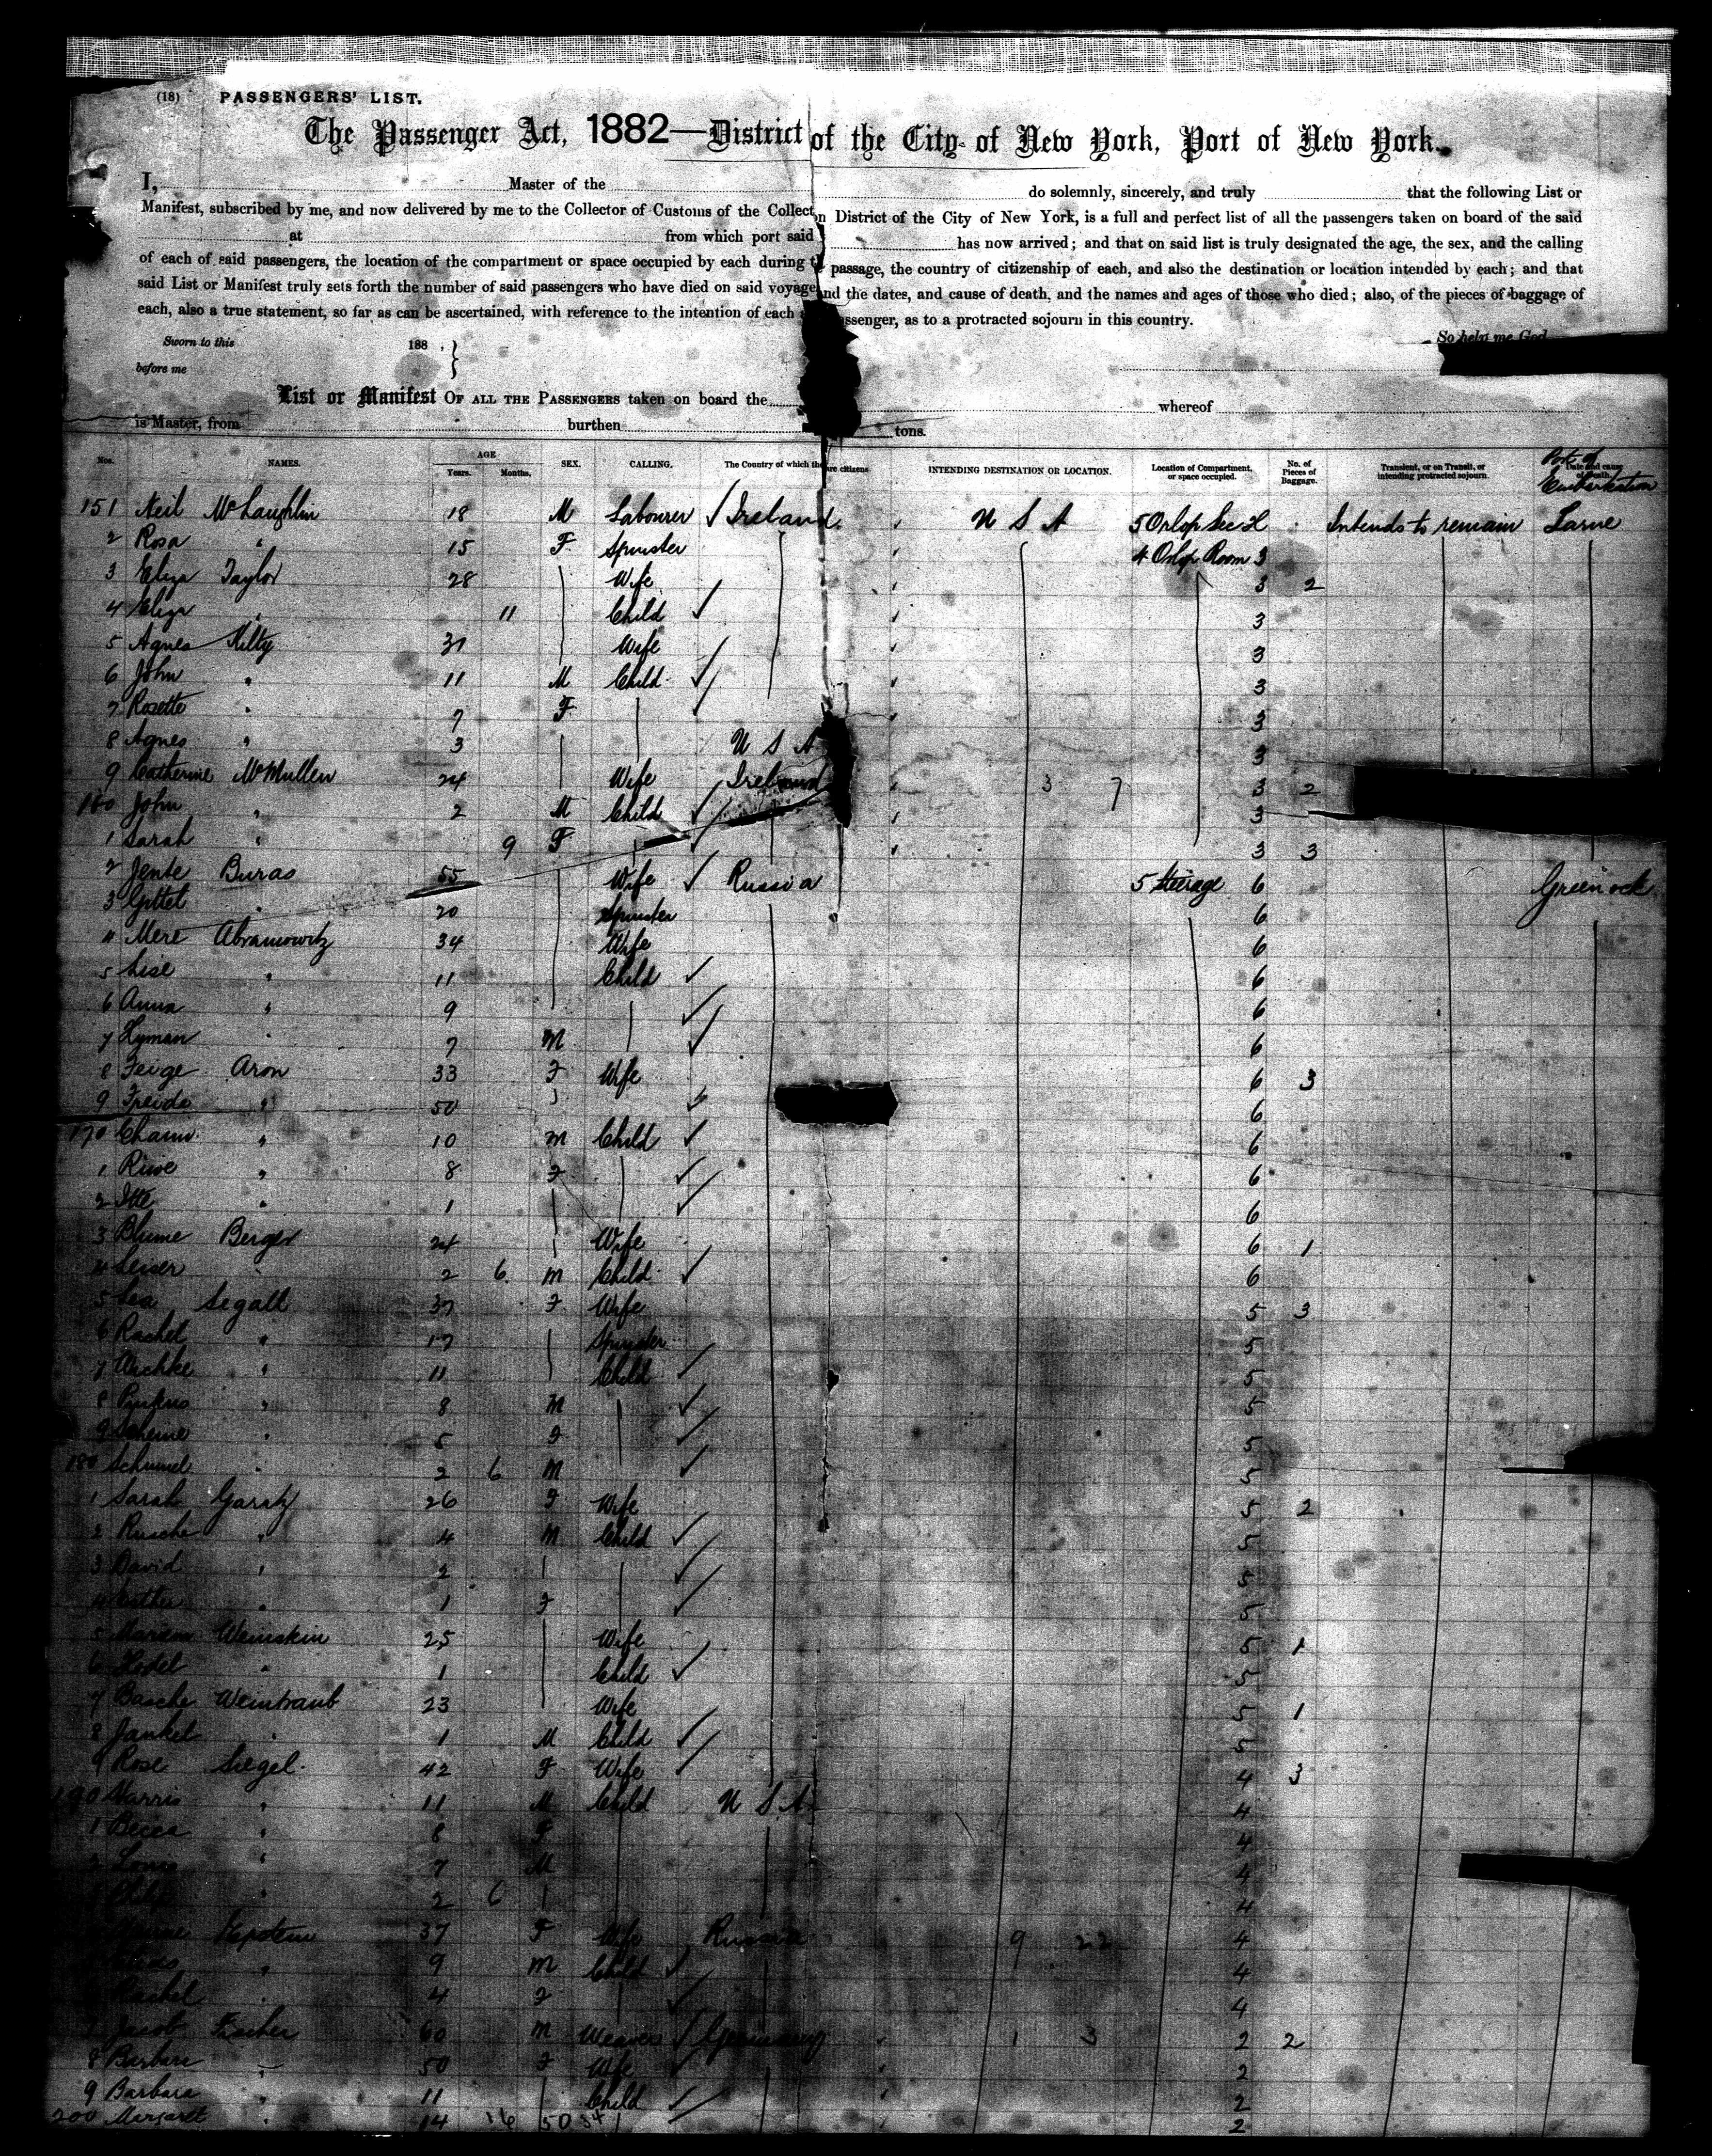 (18) PASSENGERS' LIST.
The Passenger Act, 1882—District of the City of New York, Port of New York.
I, Master of the do solemnly, sincerely, and truly that the following List or
Manifest, subscribed by me, and now delivered by me to the Collector of Customs of the Collect n District of the City of New York, is a full and perfect list of all the passengers taken on board of the said
at from which port said has now arrived; and that on said list is truly designated the age, the sex, and the calling
of each of said passengers, the location of the compartment or space occupied by each during passage, the country of citizenship of each, and also the destination or location intended by each; and that
said List or Manifest truly sets forth the number of said passengers who have died on said voyage nd the dates, and cause of death, and the names and ages of those who died; also, of the pieces of baggage of
each, also a true statement, so far as can be ascertained, with reference to the intention of each ssenger, as to a protracted sojourn in this country.
Sworn to this 188 , So help me God
before me
List or Manifest OF ALL THE PASSENGERS taken on board the whereof
is Master, from burthen tons.
Nos. NAMES. AGE Years. Months. SEX. CALLING. The Country of which the are citizens INTENDING DESTINATION OR LOCATION. Location of Compartment, or space occupied. No. of Pieces of Baggage. Transient, or on Transit, or intending protracted sojourn. Date and cause of Death. Port of Embarkation
151 Neil McLaughlin 18 M Labourer Ireland U S A 5 Orlop Sec Intends to remain Larne
2 Rosa " 15 F Spinster 4 Orlop Room 3
3 Eliza Taylor 28 Wife 3 2
4 Eliza " 11 Child 3
5 Agnes Kilty 31 Wife 3
6 John " 11 M Child 3
7 Rosette " 7 F 3
8 Agnes " 3 U S A 3
9 Catherine McMullen 24 Wife Ireland 3 7 3 2
160 John " 2 M Child 3
1 Sarah " 9 F 3 3
2 Jente Buras 55 Wife Russia 5 Steerage 6 Greenock
3 Gittel " 20 Spinster 6
4 Mere Abramowitz 34 Wife 6
5 Lise " 11 Child 6
6 Anna " 9 6
7 Hyman " 7 M 6
8 Feige Aron 33 F Wife 6 3
9 Freide " 50 6
170 Chaim " 10 M Child 6
1 Riwe " 8 F 6
2 Itte " 1 6
3 Blume Berger 24 Wife 6 1
4 Leiser " 2 6 M Child 6
5 Lea Segall 37 F Wife 5 3
6 Rachel " 17 Spinster 5
7 " 11 Child 5
8 Pinkus " 8 M 5
9 Scheine " 5 F 5
180 Schmuel " 2 6 M 5
1 Sarah Garatz 26 F Wife 5 2
2 Rusche " 4 M Child 5
3 David " 2 5
4 " 1 F 5
5 Mariem Weinskin 25 Wife 5 1
6 Hodel " 1 Child 5
7 Basche Weintraub 23 Wife 5 1
8 Jankel " 1 M Child 5
9 Rose Siegel 42 F Wife 4 3
190 Harris " 11 M Child U S A 4
1 Becca " 8 F 4
2 Louis " 7 M 4
" 2 6 4
Epstein 37 F Wife Russia 9 22 4
" 9 M Child 4
Rachel " 4 F 4
7 Jacob Fischer 60 M Weaver Germany 1 3 2 2
8 Barbara " 50 F Wife 2
9 Barbara " 11 Child 2
200 Margaret " 14 16 50 34 2